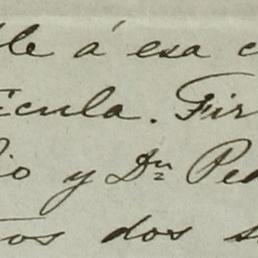 lle á esa c
ícula. Fir
io y Dn Ped
tos dos s